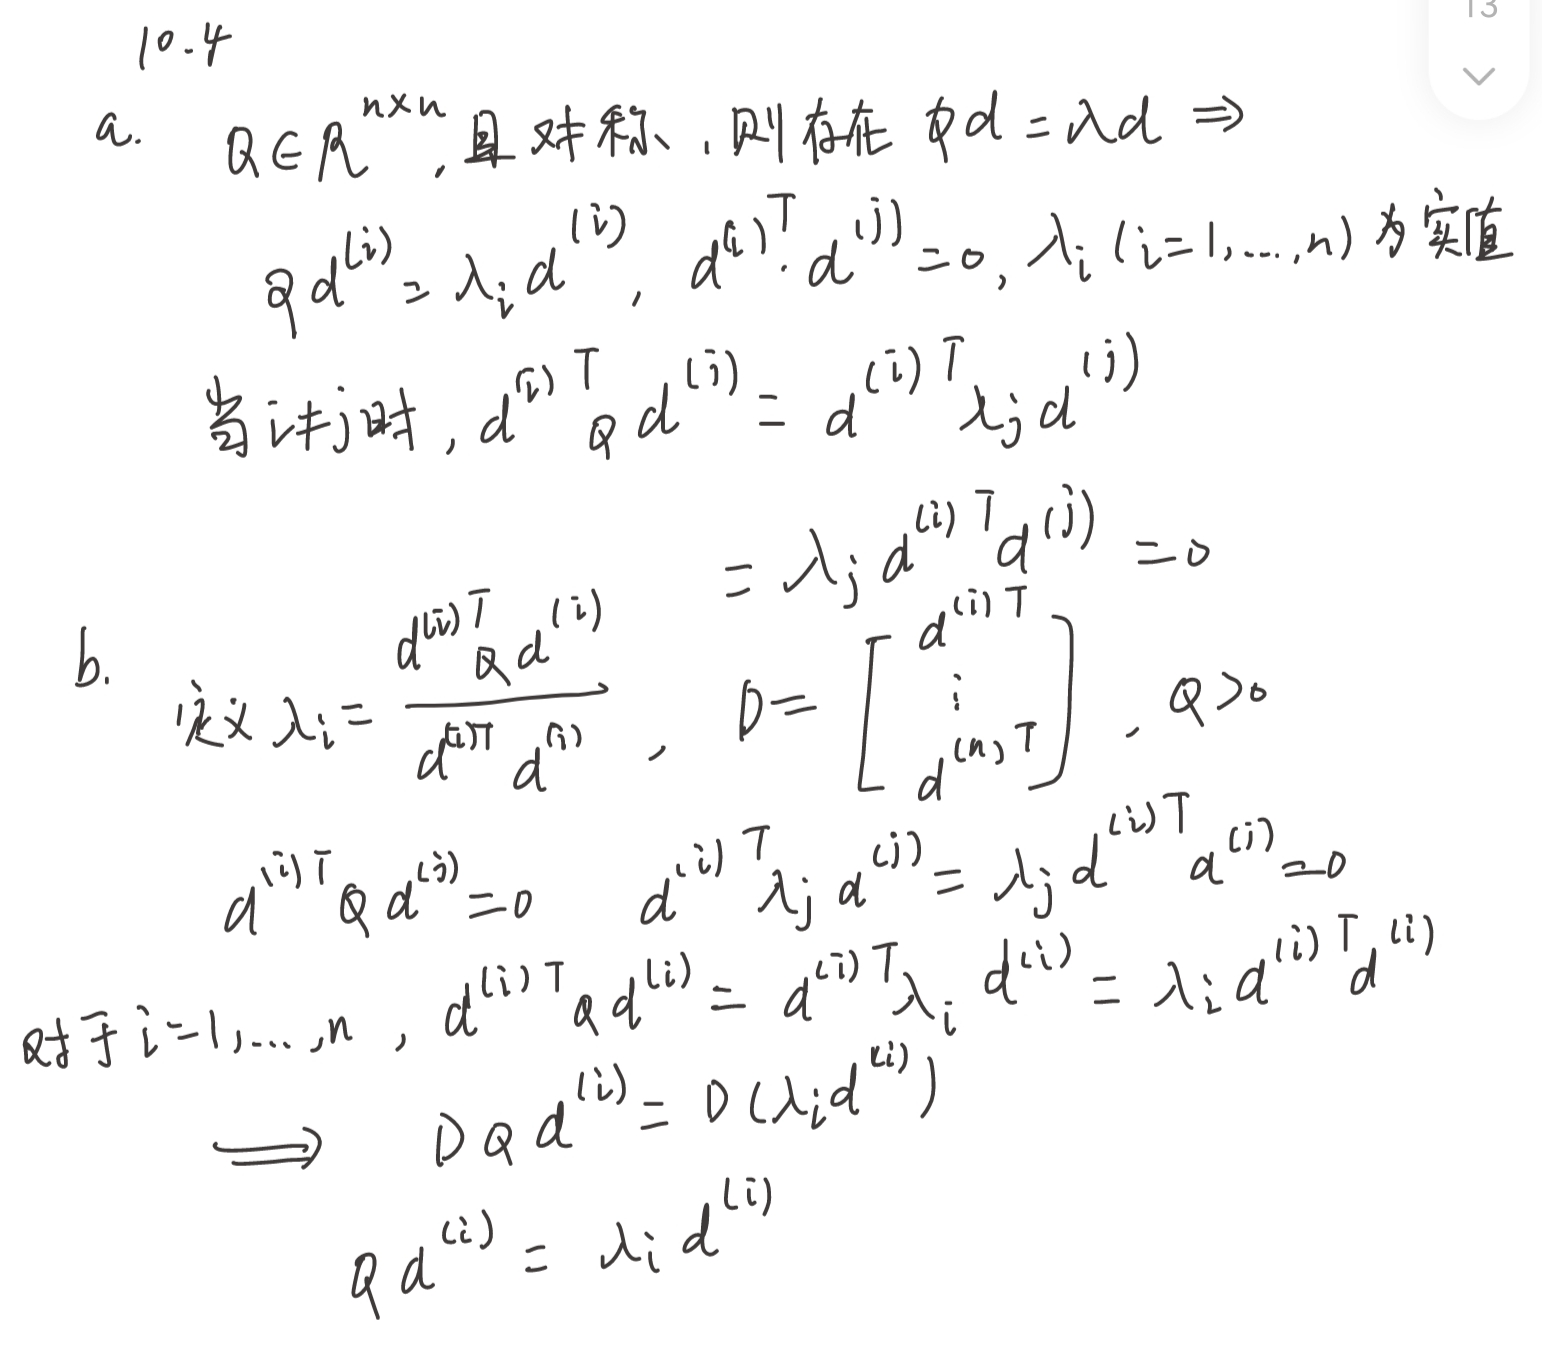 13
10.4
a. Q∈R^{n×n}, 且对称, 则存在 Qd = λd ⇒
Qd^{(i)} = λ_i d^{(i)}, d^{(i)T}·d^{(j)} = 0, λ_i (i=1,...,n) 为实值
当 i≠j 时, d^{(i)T} Q d^{(j)} = d^{(i)T} λ_j d^{(j)}
= λ_j d^{(i)T} d^{(j)} = 0
b. 定义 λ_i = \frac{d^{(i)T} Q d^{(i)}}{d^{(i)T} d^{(i)}}, D = [d^{(i)T} ⋮ d^{(n)T}], Q>0
d^{(i)T} Q d^{(j)} = 0 d^{(i)T} λ_j d^{(j)} = λ_j d^{(i)T} d^{(j)} = 0
对于 i=1,...,n, d^{(i)T} Q d^{(i)} = d^{(i)T} λ_i d^{(i)} = λ_i d^{(i)T} d^{(i)}
⟹ DQd^{(i)} = D(λ_i d^{(i)})
Qd^{(i)} = λ_i d^{(i)}